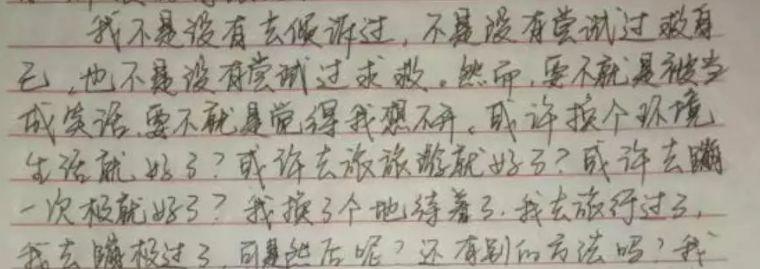 我不是没有去倾诉过，不是没有尝试过救自
己，也不是没有尝试过求救。然而，要不就是被当
成笑话，要不就是觉得我想不开。或许换个环境
生活就好了？或许去旅旅游就好了？或许去蹦
一次极就好了？我换了个地待着了，我去旅行过了，
我去蹦极过了，可是然后呢？还有别的方法吗？我